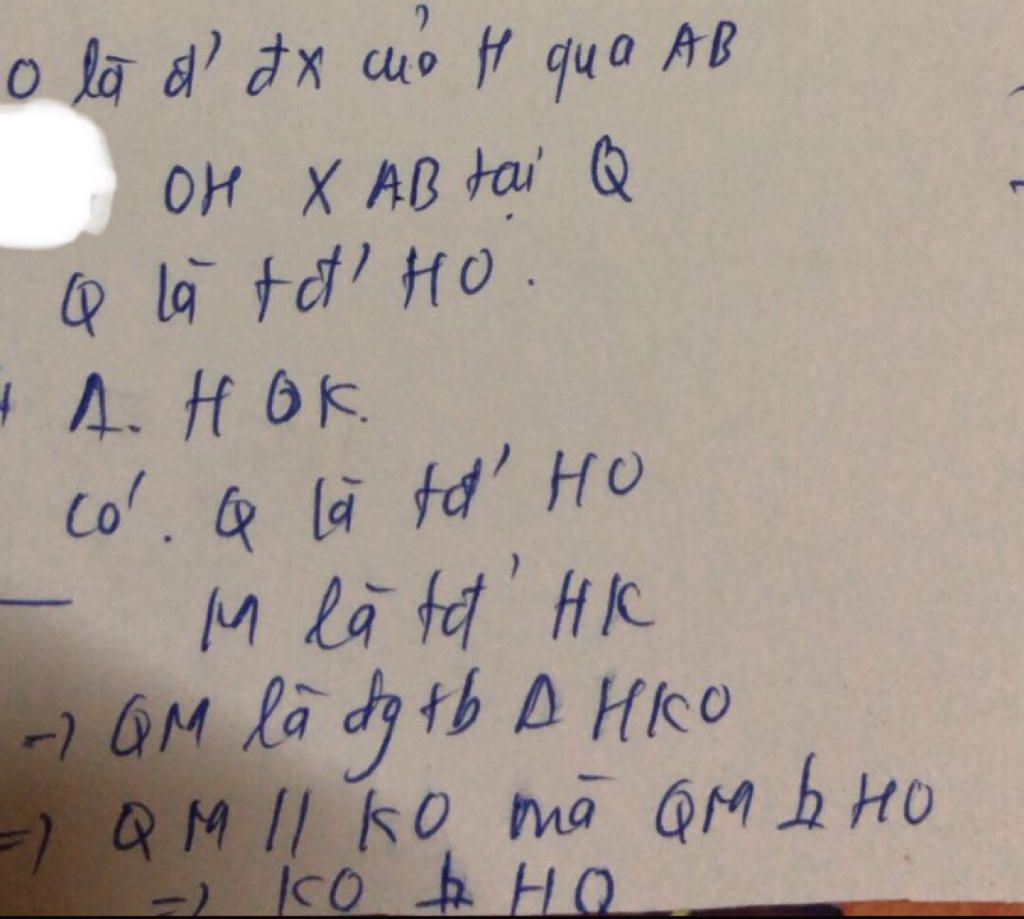 O là đ' đx của H qua AB
OH X AB tại Q
Q là tđ' HO.
Δ. HOK.
có. Q là tđ' HO
M là tđ' HK
→ QM là đg tb Δ HKO
⇒ QM // KO mà QM ⊥ HO
⇒ KO ⊥ HO